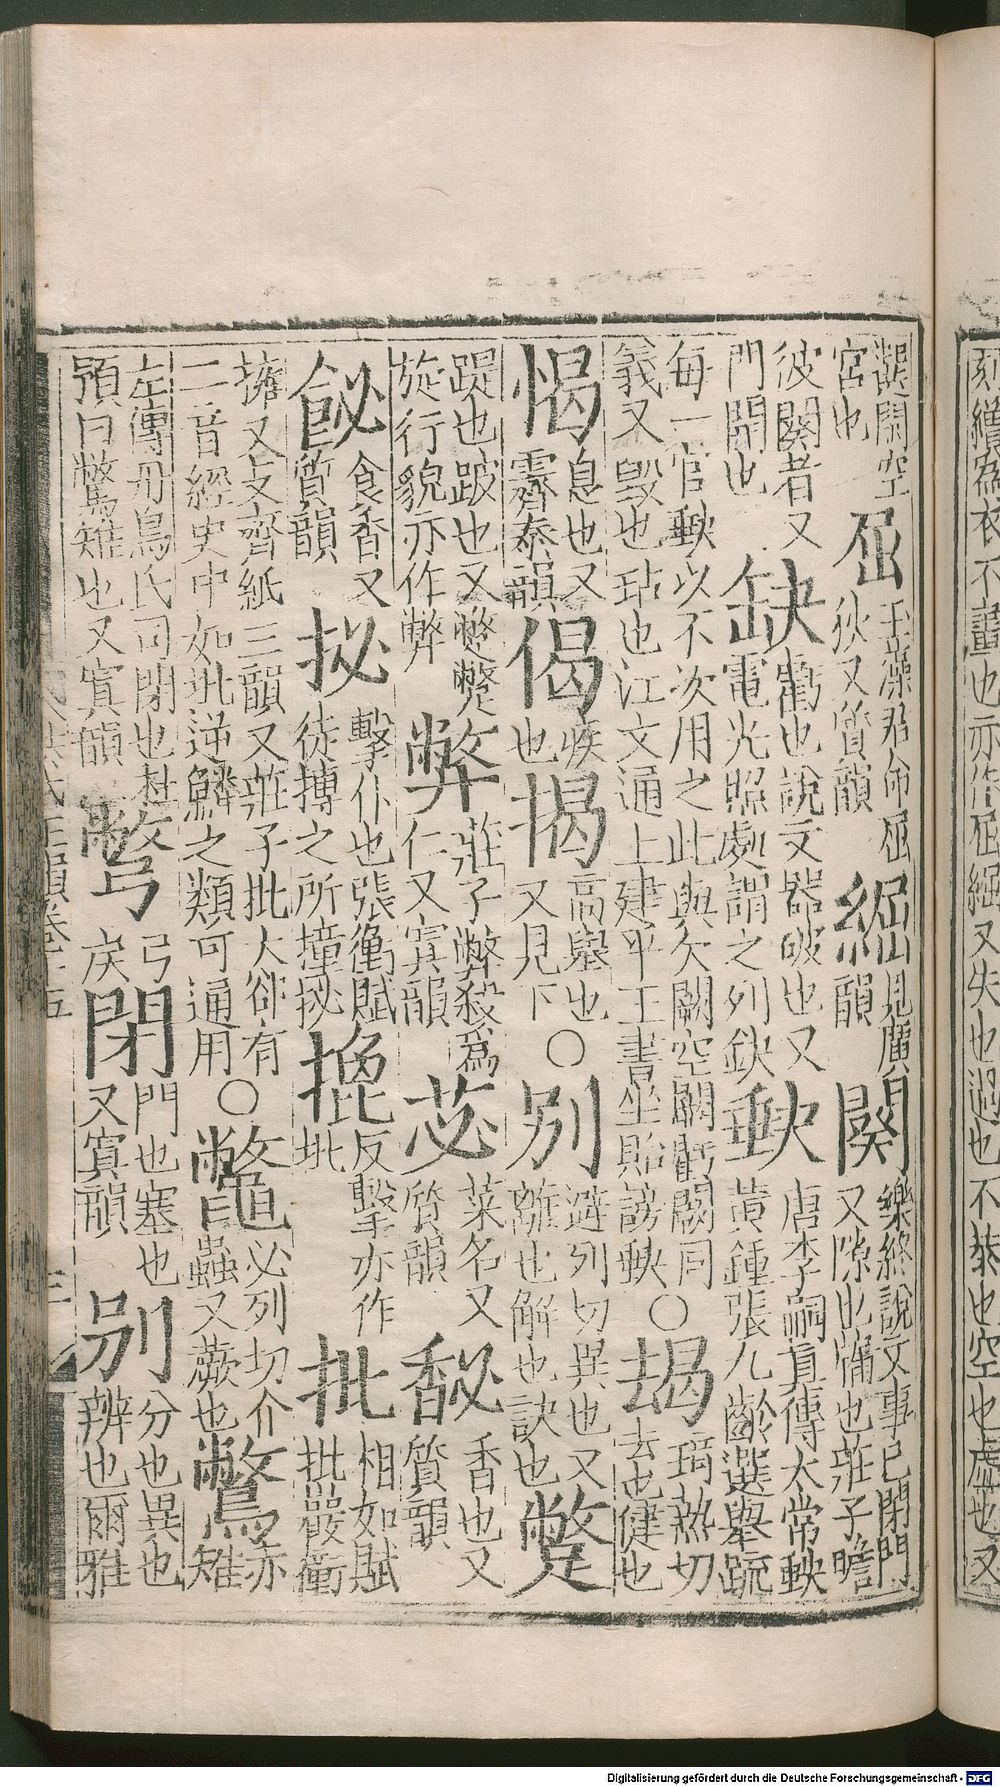 闋空
宮也
屈
玉藻君命屈
狄又質韻
䋿
見廣
韻
闋
樂終說文事已閉門
又隙也滿也莊子瞻
彼闋者又
門開也
缺
虧也說文器破也又
電光照處謂之列缺
䩗
唐李嗣真傳太常䩗
黃鍾張九齡選舉疏
每一官䩗以不次用之此與欠闕空闕虧闕同〇
義又毀也玷也江文通上建平王書坐貽謗缺
朅
丘熱切
去也健也
愒
息也又
霽泰韻
偈
疾
也
揭
高舉也
又見下
〇
別
避列切異也又
離也解也訣也
蹩
踶也跛也又蹩躠
旋行貌亦作
弊
莊子弊殺為
仁又寘韻
苾
菜名又
質韻
馝
香也又
質韻
飶
食香又
質韻
㧙
擊仆也張衡賦
徒搏之所撞㧙
㩢
反擊亦作
批
批
相如賦
批巖衝
擁又支齊紙三韻又莊子批大卻有
二音經史中如批逆鱗之類可通用
〇
鼈
必列切介
蟲又蕨也
鷩
赤
雉
左傳丹鳥氏司閉也杜
預曰鷩雉也又寘韻
彆
弓
戾
閉
門也塞也
又寘韻
別
分也異也
辨也爾雅
刻繒為衣不畫也亦作屈䋿又失也過也不恭也空也虛也又
Digitalisierung gefördert durch die Deutsche Forschungsgemeinschaft - DFG